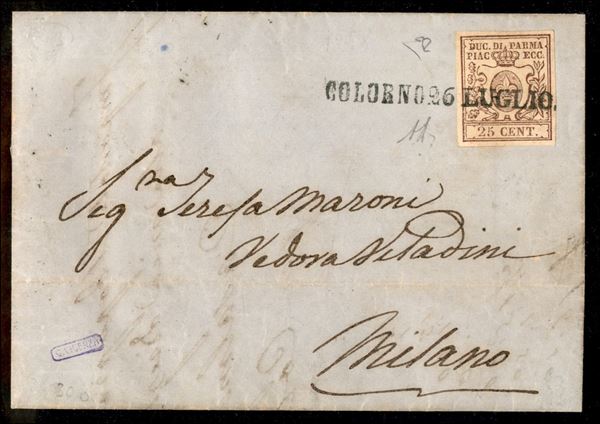 DUC. DI PARMA
PIAC ECC.
COLORNO 26 LUGLIO.
25 CENT.
11
Sig.ra Teresa Maroni
Vedova Vitadini
Milano